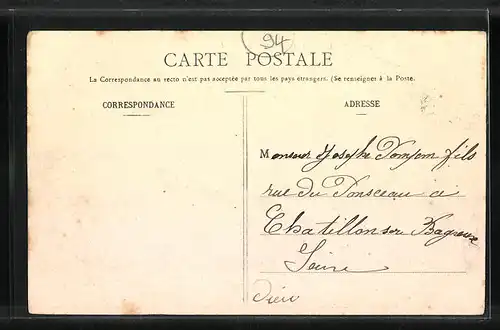 94
CARTE POSTALE
La Correspondance au recto n'est pas acceptée par tous les pays étrangers. (Se renseigner à la Poste.
CORRESPONDANCE
ADRESSE
Monsieur Joseph fils
rue du Ponceau à
Chatillon sur Bagneux
Seine